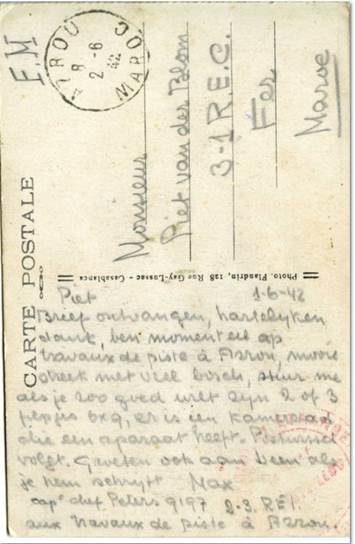 F.M
AZROU
8-6
2 42
MAROC
Monsieur
Piet van der Blom
3-1 R.E.C.
Fes
Maroc
CARTE POSTALE
Photo. Flandrin, 128 Rue Gay-Lussac - Casablanca
Piet 1-6-42
Brief ontvangen, hartelyken
dank, ben momenteel op
travaux de piste à Azrou, mooie
streek met veel bosch, stuur me
als je zoo goed wilt zyn 2 of 3
6x9, er is een kameraad
die een aparaat heeft.
volgt. Groeten ook aan als
je hem schryft Max
cap° chef Peters 9197 2-3. REI.
aux travaux de piste à Azrou.